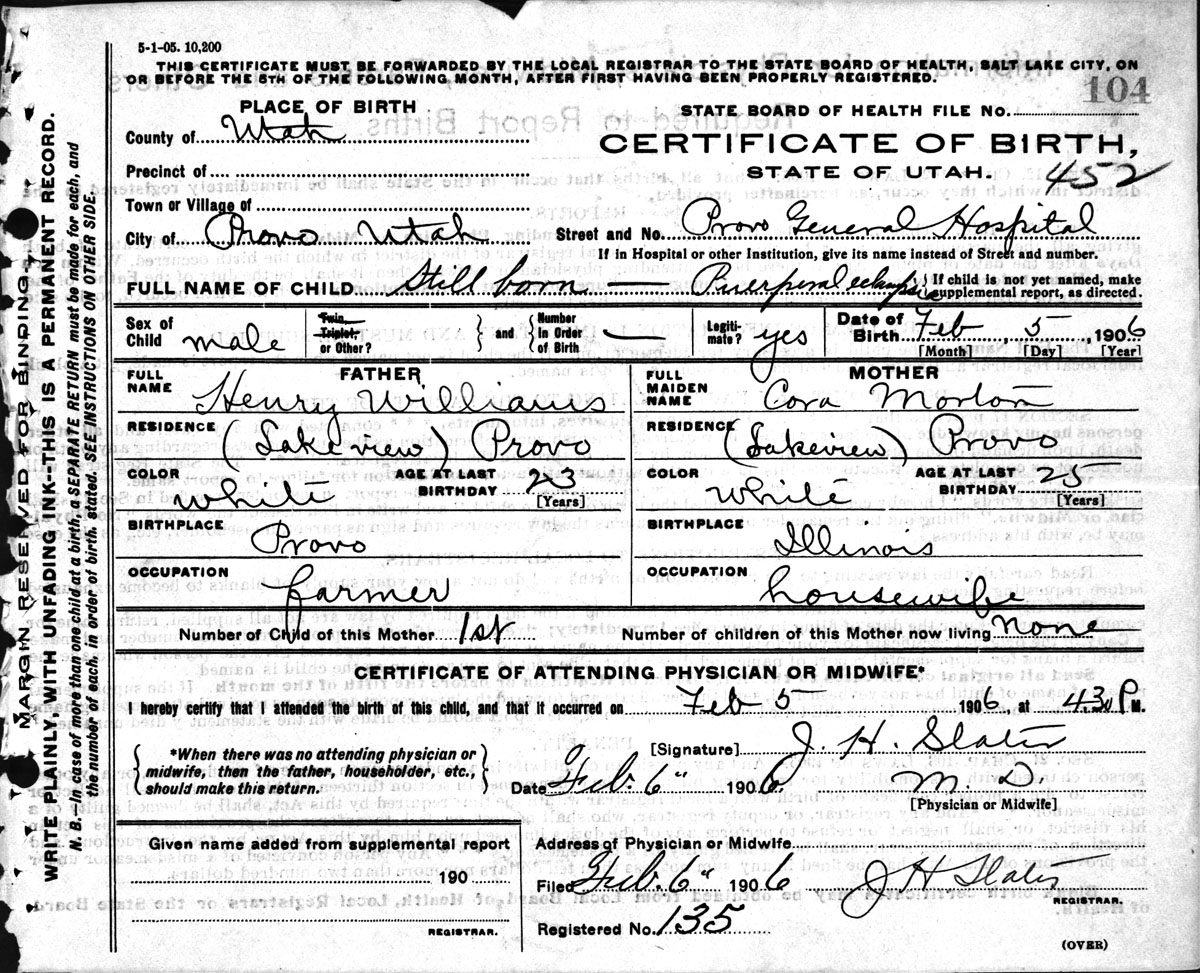 5-1-05. 10,200
THIS CERTIFICATE MUST BE FORWARDED BY THE LOCAL REGISTRAR TO THE STATE BOARD OF HEALTH, SALT LAKE CITY, ON
OR BEFORE THE 5TH OF THE FOLLOWING MONTH, AFTER FIRST HAVING BEEN PROPERLY REGISTERED.
104
PLACE OF BIRTH
STATE BOARD OF HEALTH FILE No.
County of Utah
CERTIFICATE OF BIRTH,
Precinct of
STATE OF UTAH.
452
Town or Village of
City of Provo Utah Street and No. Provo General Hospital
If in Hospital or other Institution, give its name instead of Street and number.
FULL NAME OF CHILD Still born — Puerperal eclampsia If child is not yet named, make supplemental report, as directed.
Sex of Child male Twin, Triplet, or Other? and Number in Order of Birth — Legitimate? yes Date of Birth Feb 5, 1906
[Month] [Day] [Year]
FATHER
MOTHER
FULL NAME Henry Williams
FULL MAIDEN NAME Cora Morton
RESIDENCE (Lakeview) Provo
RESIDENCE (Lakeview) Provo
COLOR white AGE AT LAST BIRTHDAY 23 [Years]
COLOR White AGE AT LAST BIRTHDAY 25 [Years]
BIRTHPLACE Provo
BIRTHPLACE Illinois
OCCUPATION farmer
OCCUPATION housewife
Number of Child of this Mother 1st Number of children of this Mother now living none
CERTIFICATE OF ATTENDING PHYSICIAN OR MIDWIFE*
I hereby certify that I attended the birth of this child, and that it occurred on Feb 5 1906, at 430 P M.
*When there was no attending physician or
midwife, then the father, householder, etc.,
should make this return.
[Signature] J. H. Slater
Date Feb. 6" 1906. M. D
[Physician or Midwife]
Given name added from supplemental report
190
REGISTRAR.
Address of Physician or Midwife
Filed Feb. 6" 1906 J H Slater
REGISTRAR.
Registered No. 135
(OVER)
MARGIN RESERVED FOR BINDING
WRITE PLAINLY, WITH UNFADING INK--THIS IS A PERMANENT RECORD.
N. B.--In case of more than one child at a birth, a SEPARATE RETURN must be made for each, and
the number of each, in order of birth, stated. SEE INSTRUCTIONS ON OTHER SIDE.